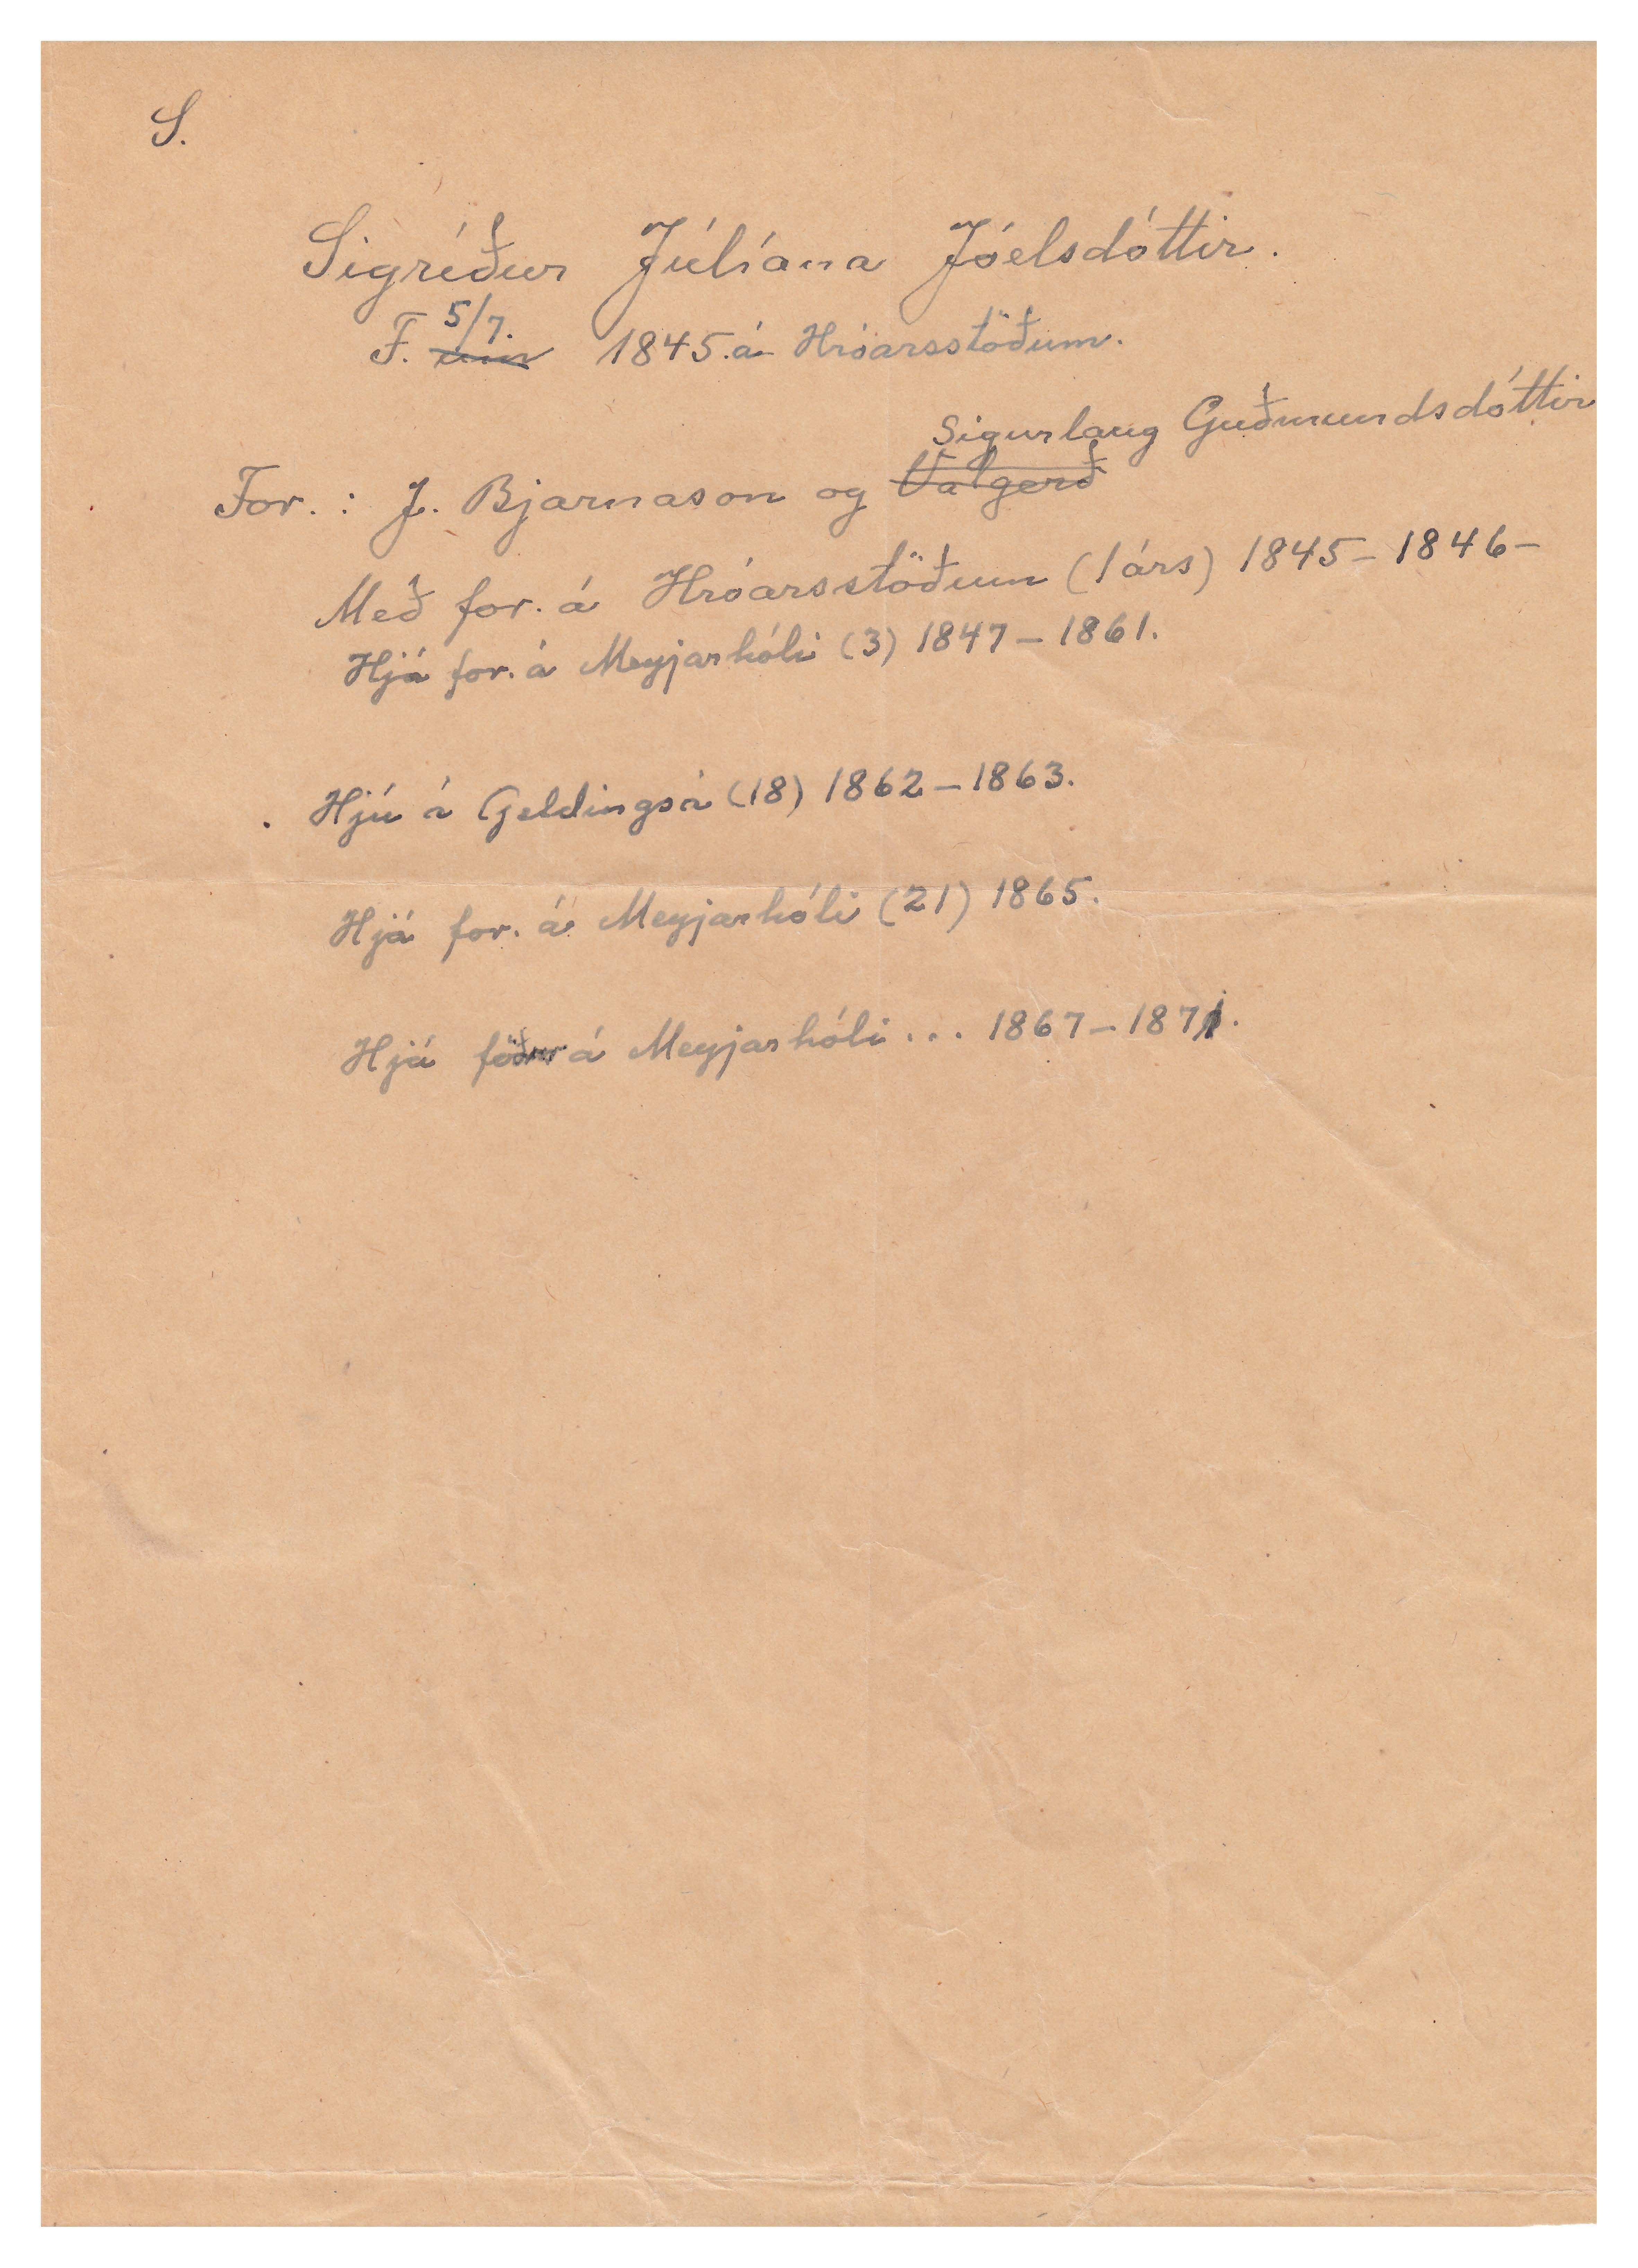 S.
Sigríður Júlíana Jóelsdóttir.
F. 5/7. 1845. á Hróarsstöðum.
Sigurlaug Guðmundsdóttir
For. : J. Bjarnason og Valgerð
Með for. á Hróarsstöðum (1 árs) 1845 - 1846 -
Hjá for. á Meyjarhóli (3) 1847 - 1861.
Hjú á Geldingsá (18) 1862 - 1863.
Hjá for. á Meyjarhóli (21) 1865.
Hjá föður á Meyjarhóli... 1867 - 1871.